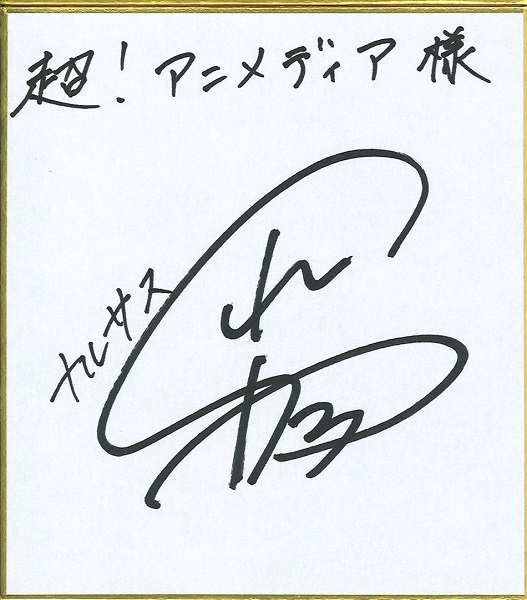 超！アニメディア様
ナルサス